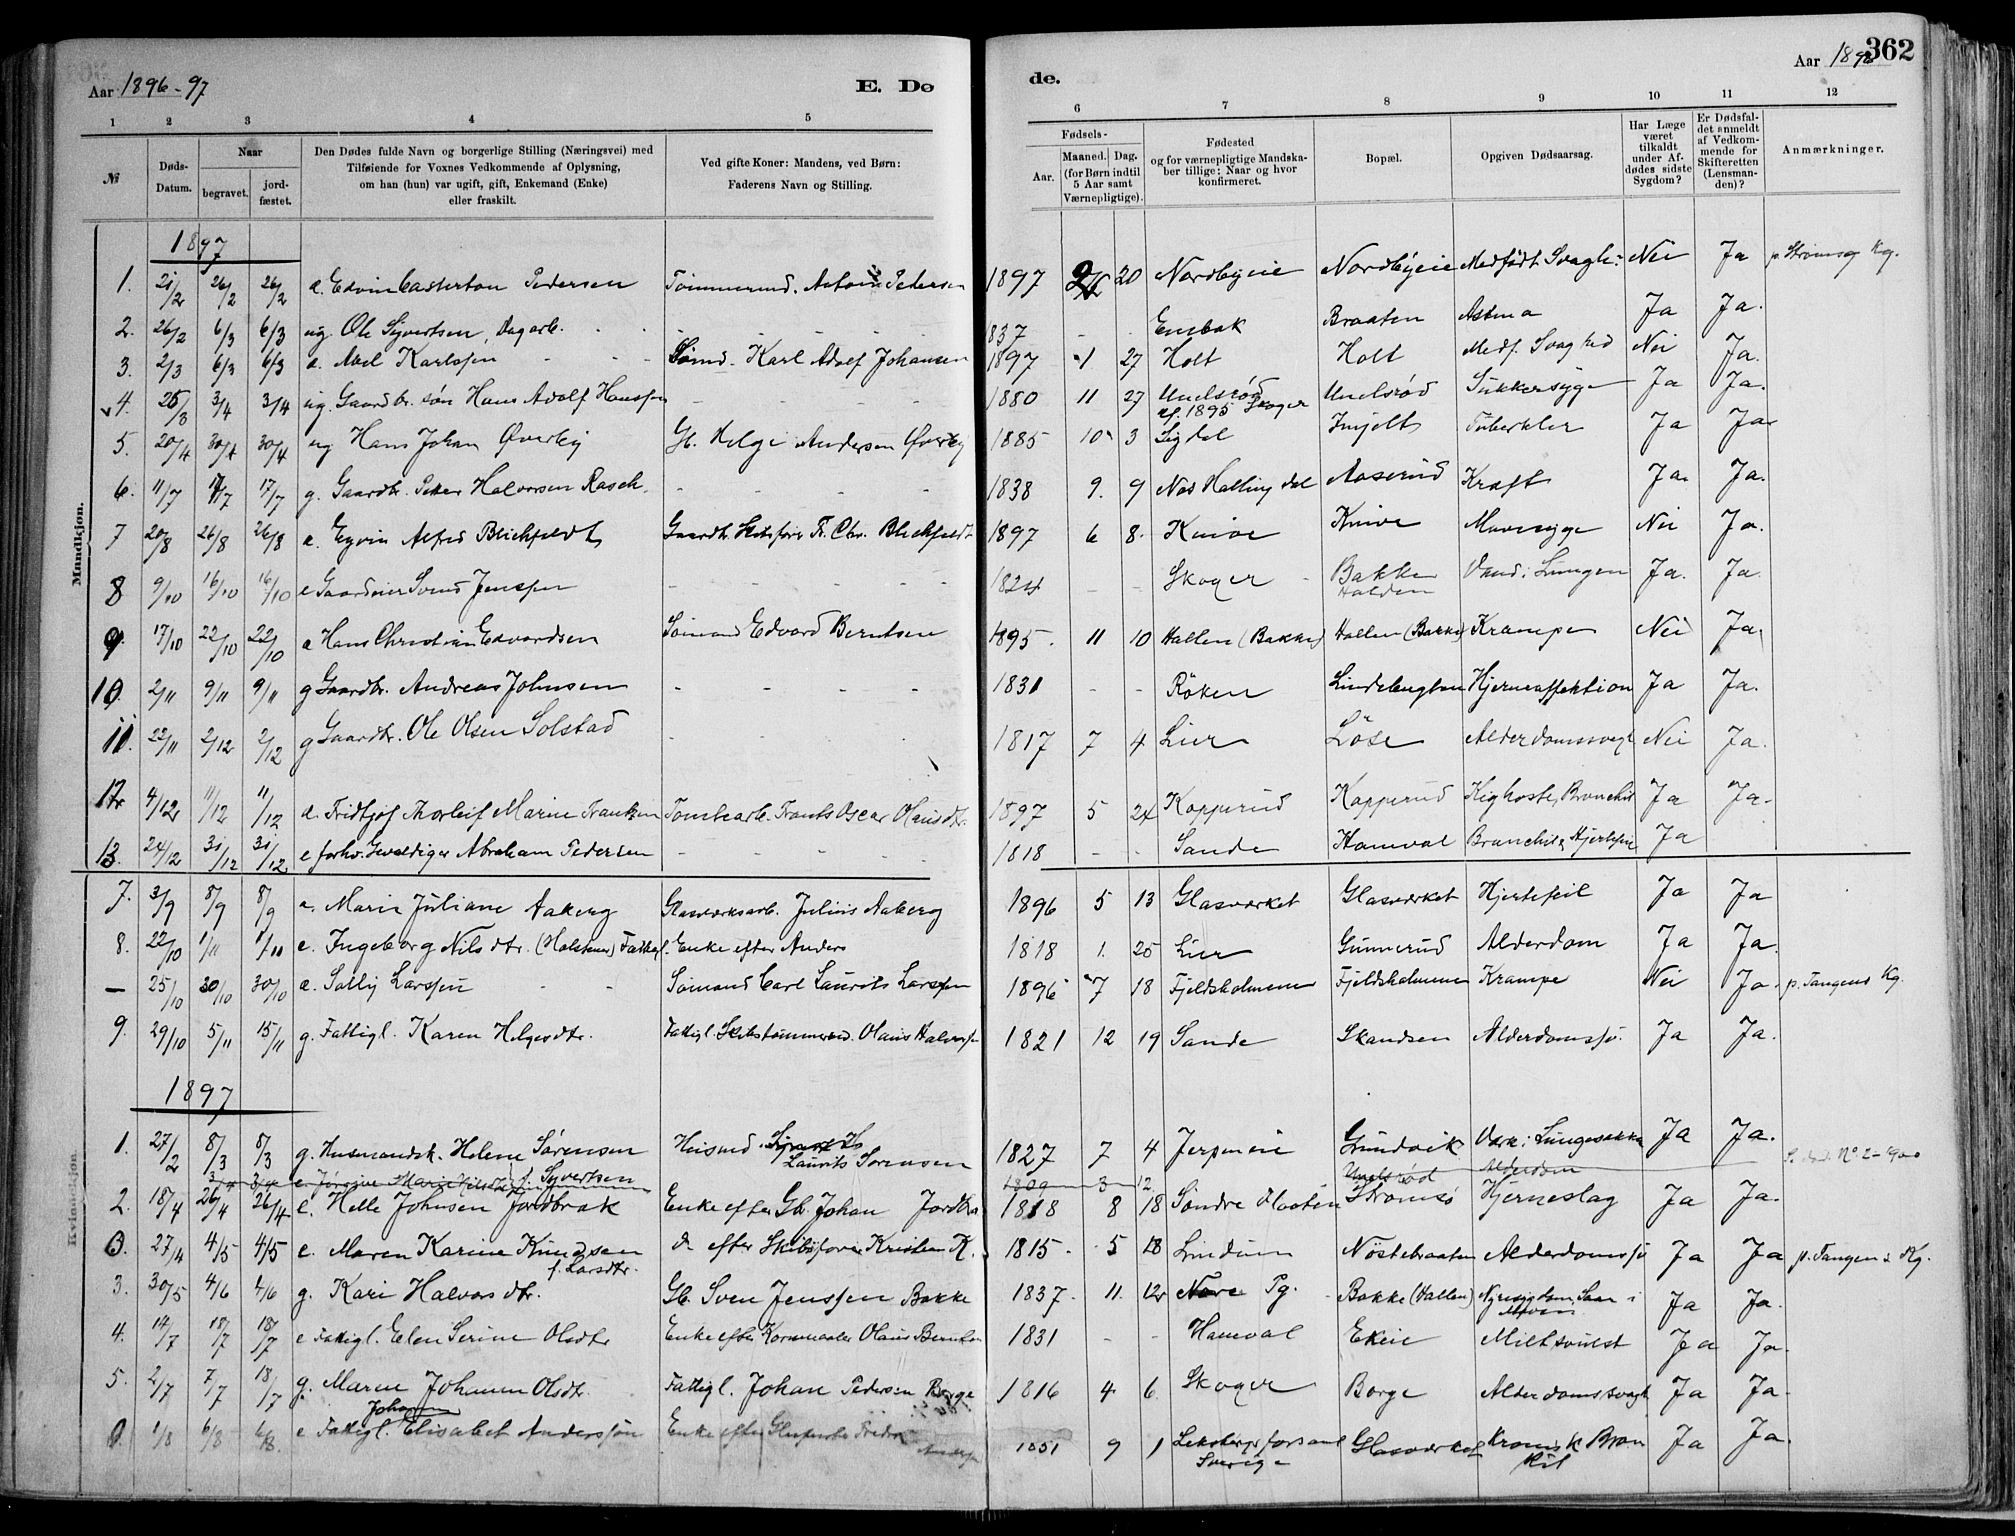 Aar 1896-97
E. Dø
de.
Aar 1898
362
1 2 3 4 5 6 7 8 9 10 11 12
№
Døds-Datum.
Naar
begravet.
jord-fæstet.
Den Dødes fulde Navn og borgerlige Stilling (Næringsvei) med
Tilføiende for Voxnes Vedkommende af Oplysning,
om han (hun) var ugift, gift, Enkemand (Enke)
eller fraskilt.
Ved gifte Koner: Mandens, ved Børn:
Faderens Navn og Stilling.
Fødsels-
Aar.
Maaned. Dag.
(for Børn indtil
5 Aar samt
Værnepligtige).
Fødested
og for værnepligtige Mandska-
ber tillige: Naar og hvor
konfirmeret.
Bopæl.
Opgiven Dødsaarsag.
Har Læge
været
tilkaldt
under Af-
dødes sidste
Sygdom?
Er Dødsfal-
det anmeldt
af Vedkom-
mende for
Skifteretten
(Lensman-
den)?
Anmærkninger.
Mandkjøn.
1897
1. 21/2 26/2 26/2 a. Edvin Casterton Pedersen Tømmermd. Anton Petersen 1897 2 20 Nordbyeie Nordbyeie Medfødt Svagh: Nei Ja p. Strømsø Kg.
2. 26/2 6/3 6/3 ug. Ole Syvertsen, Dagarb. - - - - 837 - - Enebak Braaten Astma Ja Ja.
3. 2/3 6/3 6/3 a. Abel Karlsen - - Sømd. Karl Adolf Johansen 1897 1 27 Holt Holt Medf. Svaghed Nei Ja.
4. 25/3 3/4 3/4 ug. Gaardbr. søn Hans Adolf Hanssen - - - - 1880 11 27 Unelsrød Unelsrød Sukkersyge Ja Ja.
cf. 1895 Skoger
5. 20/4 30/4 30/4 ug Hans Johan Øverby Gb. Helge Andersen Øverby 1885 10 3 Sigdal Tuberkler Ja Ja
6. 11/7 17/7 17/7 g. Gaardbr. Peter Halvorsen Rasch. - - - - 1838 9. 9 Nes Hallingdal Aaserud Kræft Ja. Ja.
7 20/8 26/8 26/8 a. Eyvin Alfred Blichfeldt Gaardbr. Skibsfører Fr. Chr. Blichfeldt 1897 6 8. Knive Knive Mavesyge Nei Ja.
8 9/10 16/10 16/10 e Gaardeier Svend Jenssen - - - - 1824 - - Skoger Bakke Vand i Lungen Ja. Ja.
Halden
9. 17/10 22/10 22/10 a Hans Christian Edvardsen Sømand Edvard Berntsen 1895. 11 10 Hallen (Bakke) Hallen (Bakke) Krampe Nei Ja
10. 2/11 9/11 9/11 g Gaardbr. Andreas Johnsen - - - - 1831 - - Røken Hjerneaffektion Ja Ja.
11. 22/11 2/12 2/12 g Gaardbr. Ole Olsen Solstad 1817 7 4 Lier Løse Alderdomssvagt Nei Ja.
12. 4/12 11/12 11/12 a. Fridtjof Thorleif Marin Frantzen Tomtearb. Frants Oscar Olausdtr. 1897 5 24 Kopperud Kopperud Kighoste, Bronchit Ja Ja.
13. 24/12 31/12 31/12 e forhv. Gevaldiger Abraham Pedersen - - - - 1818 - - Sande Hamval Bronchit & Hjertefeil Ja
Kvindekjøn.
7. 3/9 8/9 8/9 a. Marie Juliane Aaberg Glasværksarb. Julius Aaberg 1896 5 13 Glasværket Glasværket Hjertefeil Ja Ja
8. 22/10 1/11 1/11 e. Ingeborg Nilsdtr. (Holstens) Fattigl. Enke efter Anders 1818 1. 25 Lier Gunnerud Alderdom Ja Ja.
— 25/10 30/10 30/10 a. Solly Larssen - - Sømand Carl Laurits Larssen 1896 7 18 Fjeldsholmene Fjeldsholmene Krampe Nei Ja. p. Tangens Kg.
9. 29/10 5/11 15/11 g. Fattigl. Karen Helgesdtr. Fattigl. Skibstømmermd. Olaus Halvorsen 1821 12 19 Sande Skandsen Alderdomssv. Ja Ja.
1897
1. 27/2 8/3 8/3 g. Husmandsk. Helene Sørensen Husmd. Laurits Sørensen 1827 7 4 Grundvik Værk i Lungesækken Ja Ja.
3/4 3/4 e. Jørgine Marie f. Syvertsen 1809 3 12 Unelsrød Alderdom S. død. No. 2 - 1900
2. 18/4 26/4 26/4 e. Helle Johnsen Jordbræk Enke efter Gb. Johan Jordbræk 1818 8 18 Søndre Strømsø Hjerneslag Ja Ja.
27/4 4/5 4/5 e. Maren Karine Knudsen do efter Skibsfører Kristen K. 1815. 5 18 Lindum Nøstebraaten Alderdomssv Ja Ja p. Tangens Kg.
f. Larsdtr.
3. 30/5 4/6 4/6 g. Kari Halvorsdtr. Gb. Sven Jenssen Bakke 1837. 11. 12 Nore Pg. Bakke (Hallen) Nyresygdom, Saar i Maven Ja Ja.
4. 14/7 18/7 18/7 e Fattigl. Elen Serine Olsdtr Enke efter Kornmaaler Olaus Berntsen 1831 - - Hamval Ekeie Miltsvulst Ja Ja.
5. 2/7 7/7 18/7 g. Maren Johanne Olsdtr. Fattigl. Johan Pedersen Borge 1816 4 6 Skoger Borge Alderdomssvagh Ja Ja.
Johanne
1/8 6/8 6/8. e Fattigl. Elisabet Anderssøn Enke efter Andersen 1851 9 1 Glasværket Kronisk Bronkit Ja Ja.
Sverige